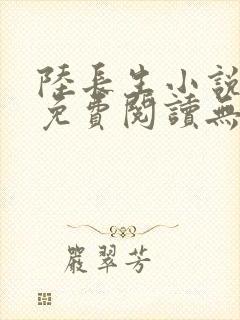 陸長生小說
免費閱讀無
嚴翠芳